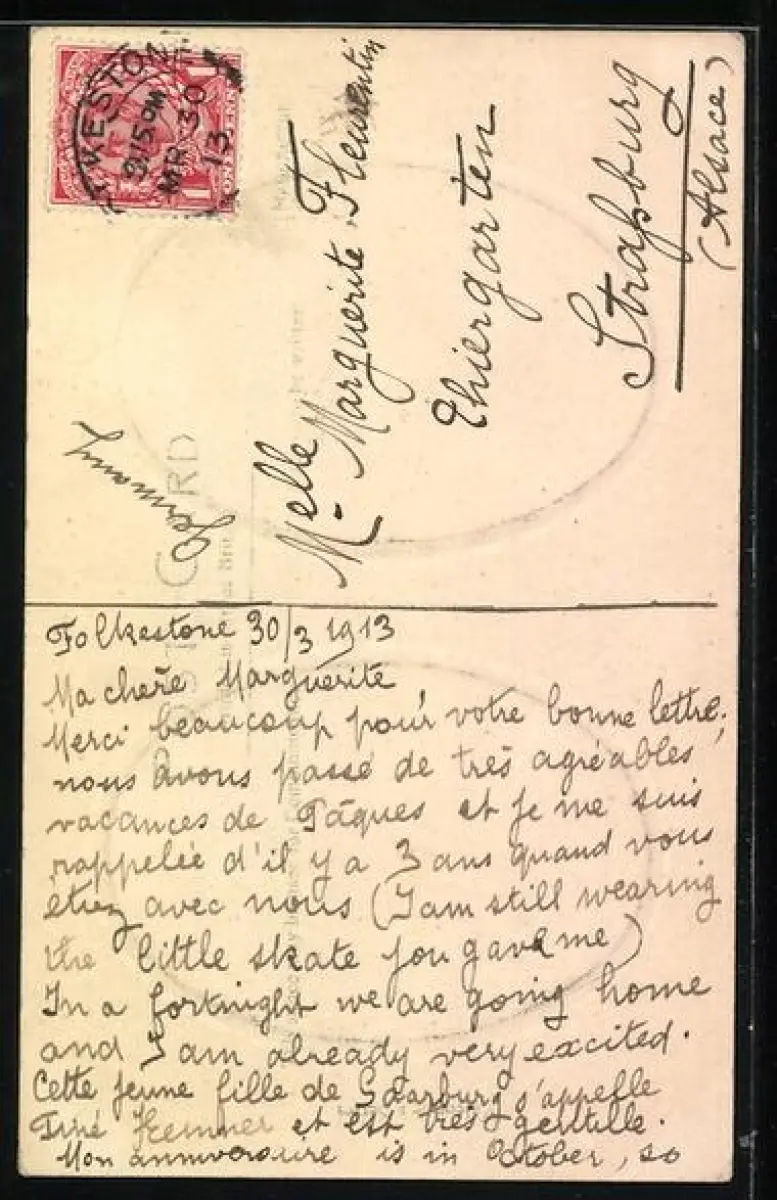 FOLKESTONE
9.15 PM
MR 30
13
ONE PENNY
POST CARD
Germany
Melle Marguerite
Thiergarten
Straßburg
(Alsace)
Folkestone 30/3 1913
Ma chère Marguerite
Merci beaucoup pour votre bonne lettre;
nous avons passé de très agréables
vacances de Pâques et je me suis
rappelée d'il y a 3 ans quand vous
étiez avec nous (I am still wearing
the little skate you gave me)
In a fortnight we are going home
and I am already very excited.
Cette jeune fille de Saarburg s'appelle
et est très gentille.
Mon anniversaire is in October, so